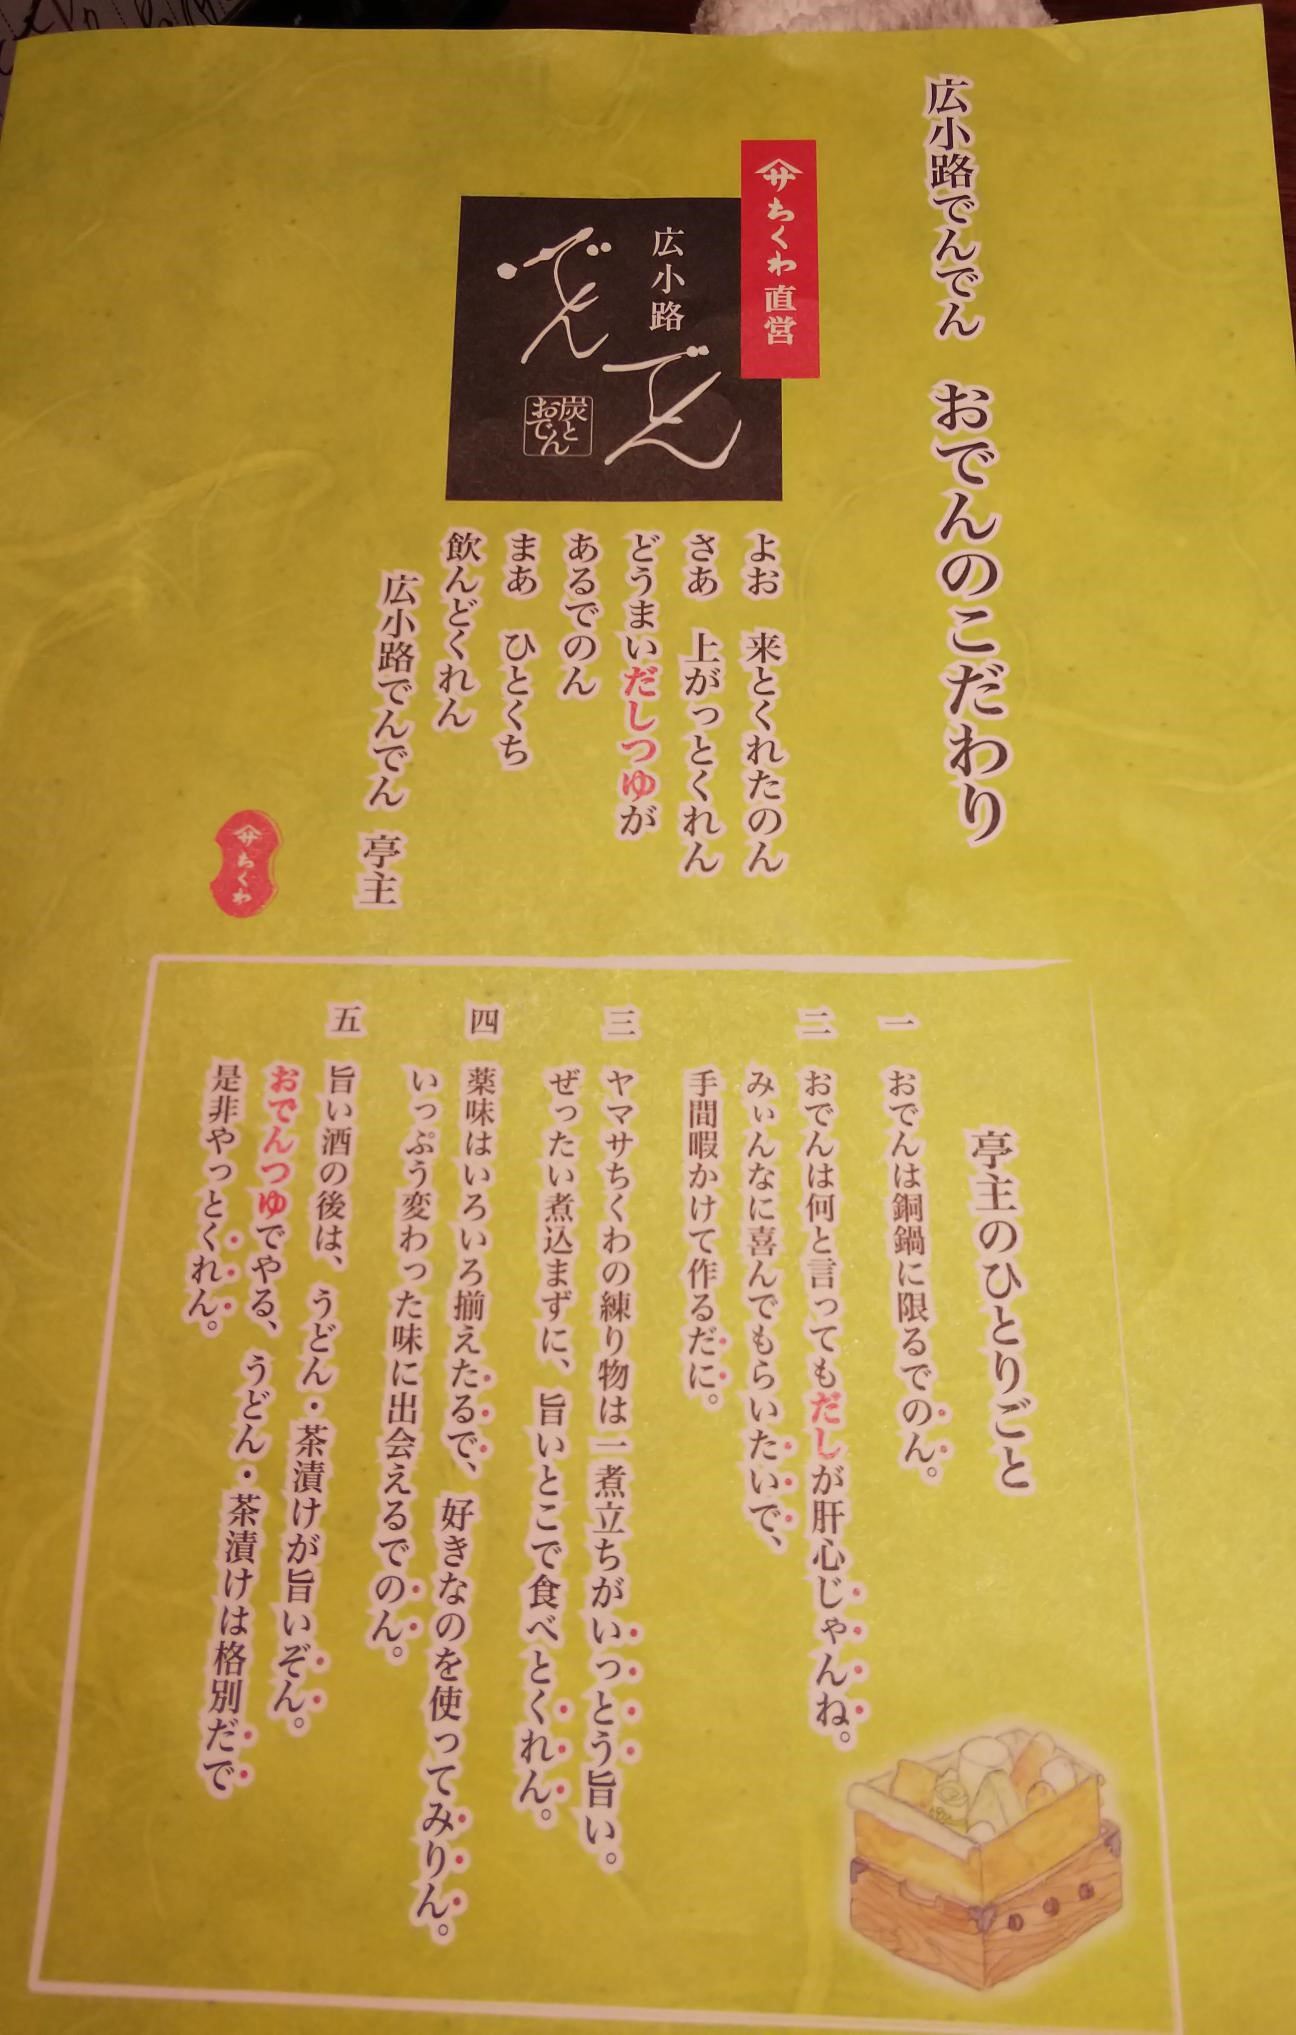 広小路でんでん　おでんのこだわり
サちくわ直営
広小路
でん
でん
炭と
おでん
よお　来とくれたのん
さあ　上がっとくれん
どうまいだしつゆが
あるでのん
まあ　ひとくち
飲んどくれん
広小路でんでん　亭主
サちくわ
亭主のひとりごと
一　おでんは銅鍋に限るでのん。
二　おでんは何と言ってもだしが肝心じゃんね。
みぃんなに喜んでもらいたいで、
手間暇かけて作るだに。
三　ヤマサちくわの練り物は一煮立ちがいっとう旨い。
ぜったい煮込まずに、旨いとこで食べとくれん。
四　薬味はいろいろ揃えたるで、好きなのを使ってみりん。
いっぷう変わった味に出会えるでのん。
五　旨い酒の後は、うどん・茶漬けが旨いぞん。
おでんつゆでやる、うどん・茶漬けは格別だで
是非やっとくれん。